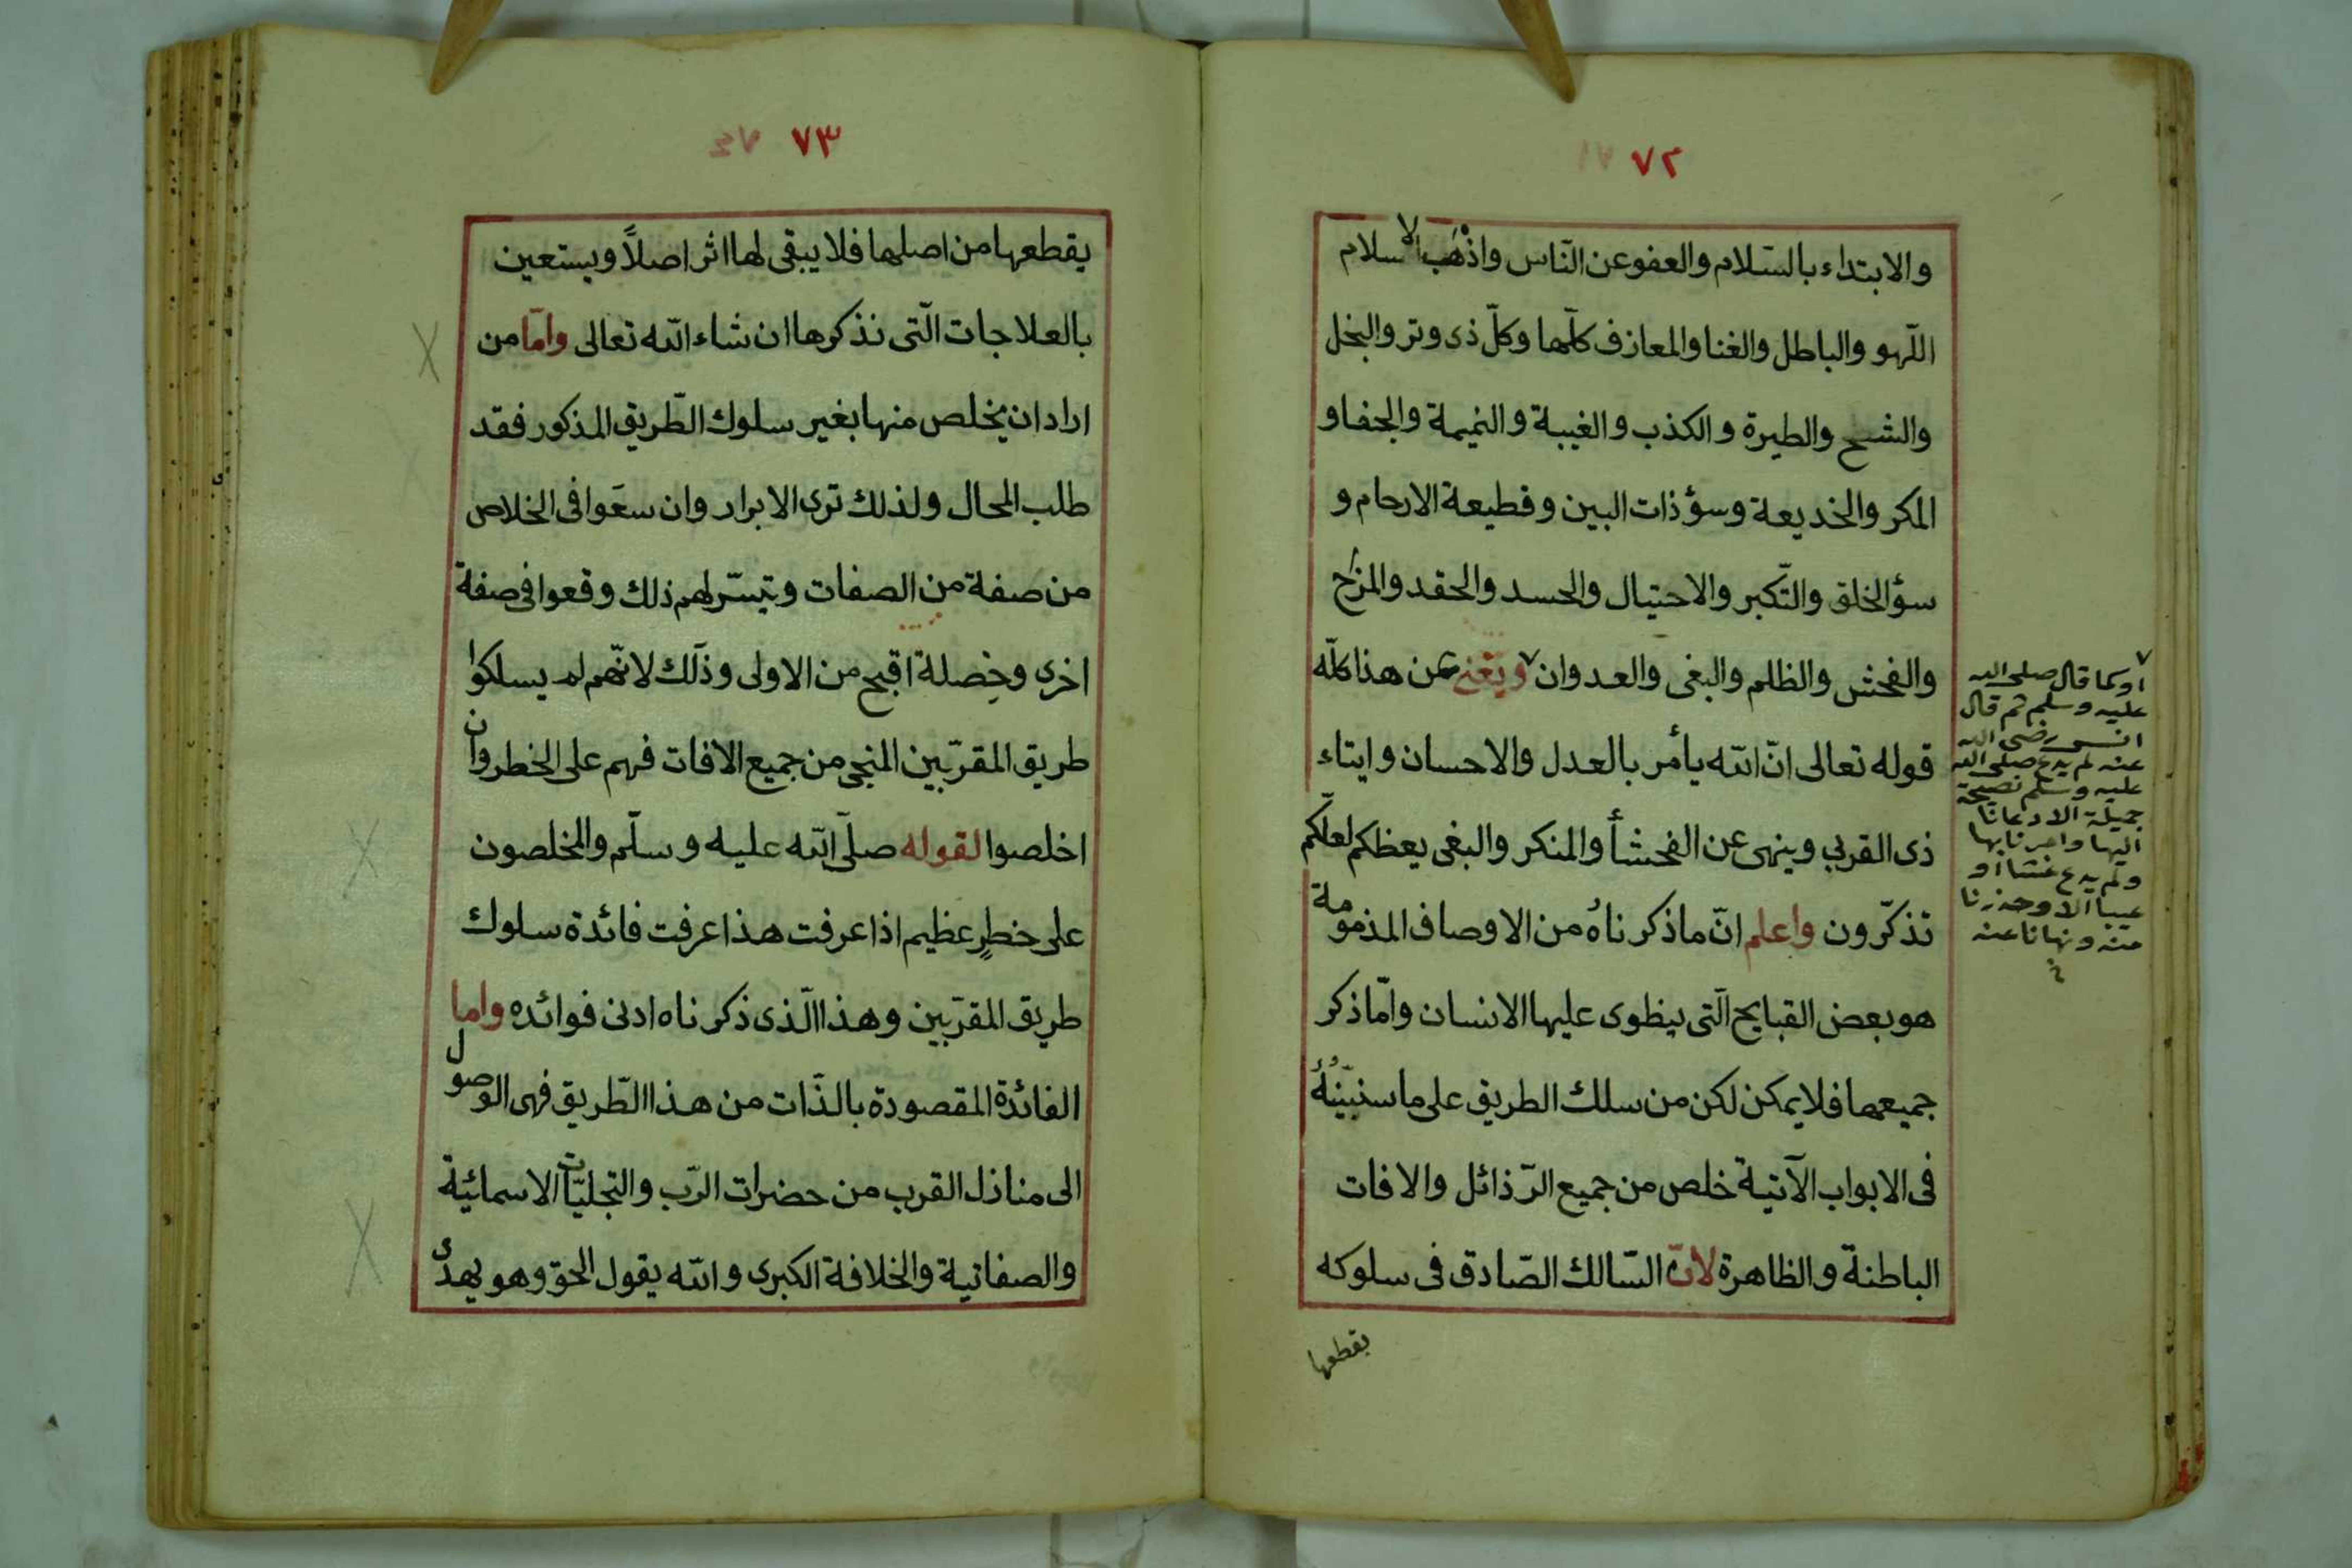 ٧٢
والابتداء بالسّلام والعفو عن النّاس واذْهَب الاسلام
اللّهو والباطل والغنا والمعازف كلّها وكلّ ذى وتر والبخل
والشح والطيرة والكذب والغيبة والنميمة والجفا و
المكر والخديعة وسؤ ذات البين وقطيعة الارحام و
سؤ الخلق والتّكبر والاحتيال والحسد والحقد والمزح
والفحش والظلم والبغى والعدوان ويغنى عن هذا كلّه
قوله تعالى انّ الله يأمر بالعدل والاحسان وايتاء
ذى القربى وينهى عن الفحشأ والمنكر والبغى يعظكم لعلّكم
تذكّرون واعلم انّ ما ذكرناهُ من الاوصاف المذمومة
هو بعض القبايح الّتى ينطوى عليها الانسان وامّا ذكر
جميعها فلا يمكن لكن من سلك الطريق على ما سنبيّنُهُ
فى الابواب الآتية خلص من جميع الرّذائل والافات
الباطنة والظاهرة لانّ السّالك الصّادق فى سلوكه
يقطعها
او كما قال صلى الله
عليه وسلم ثم قال
انس رضى الله
عنه لم يدع صلى الله
عليه وسلم نصيحة
جميلة الا دعانا
اليها وامرنا بها
ولم يدع غشا او
عيبا الا وحذرنا
منه ونهانا عنه
٧٣
يقطعها من اصلها فلا يبقى لها اثر اصلاً ويستعين
بالعلاجات الّتى نذكرها ان شاء الله تعالى وامّا من
اراد ان يخلص منها بغير سلوك الطّريق المذكور فقد
طلب المحال ولذلك ترى الابرار وان سعَوا فى الخلاص
من صفة من الصفات وتيسّر لهم ذلك وقعوا فى صفة
اخرى وخِصلة اقبح من الاولى وذلك لانّهم لم يسلكوا
طريق المقرّبين المنجى من جميع الافات فهم على الخطر وان
اخلصوا لقوله صلّى الله عليه وسلّم والمخلصون
على خطرٍ عظيم اذا عرفت هذا عرفت فائدة سلوك
طريق المقرّبين وهذا الّذى ذكرناه ادنى فوائده واما
الفائدة المقصودة بالذّات من هذا الطّريق فهى الوصول
الى منازل القرب من حضرات الرّب والتجليّات الاسمائية
والصفاتية والخلافة الكبرى والله يقول الحق وهو يهدى